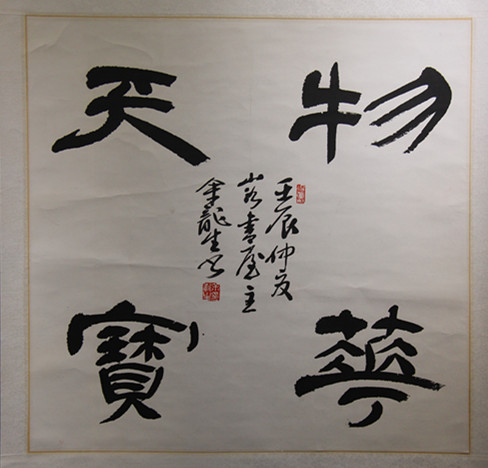 物華
天寶
壬辰仲夏
書屋主
龍生書